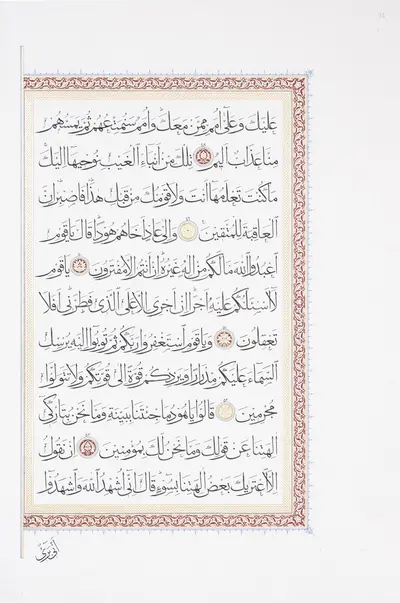 عَلَيْكَ وَعَلَىٰ أُمَمٍ مِمَّنْ مَعَكَ وَأُمَمٌ سَنُمَتِّعُهُمْ ثُمَّ يَمَسُّهُمْ
مِنَّا عَذَابٌ أَلِيمٌ تِلْكَ مِنْ أَنْبَاءِ الْغَيْبِ نُوحِيهَا إِلَيْكَ
مَا كُنْتَ تَعْلَمُهَا أَنْتَ وَلَا قَوْمُكَ مِنْ قَبْلِ هَٰذَا فَاصْبِرْ إِنَّ
الْعَاقِبَةَ لِلْمُتَّقِينَ وَإِلَىٰ عَادٍ أَخَاهُمْ هُودًا قَالَ يَا قَوْمِ
اعْبُدُوا اللَّهَ مَا لَكُمْ مِنْ إِلَٰهٍ غَيْرُهُ إِنْ أَنْتُمْ إِلَّا مُفْتَرُونَ يَا قَوْمِ
لَا أَسْئَلُكُمْ عَلَيْهِ أَجْرًا إِنْ أَجْرِيَ إِلَّا عَلَى الَّذِي فَطَرَنِي أَفَلَا
تَعْقِلُونَ وَيَا قَوْمِ اسْتَغْفِرُوا رَبَّكُمْ ثُمَّ تُوبُوا إِلَيْهِ يُرْسِلِ
السَّمَاءَ عَلَيْكُمْ مِدْرَارًا وَيَزِدْكُمْ قُوَّةً إِلَىٰ قُوَّتِكُمْ وَلَا تَتَوَلَّوْا
مُجْرِمِينَ قَالُوا يَا هُودُ مَا جِئْتَنَا بِبَيِّنَةٍ وَمَا نَحْنُ بِتَارِكِي
آلِهَتِنَا عَنْ قَوْلِكَ وَمَا نَحْنُ لَكَ بِمُؤْمِنِينَ إِنْ نَقُولُ
إِلَّا اعْتَرَيكَ بَعْضُ آلِهَتِنَا بِسُوءٍ قَالَ إِنِّي أُشْهِدُ اللَّهَ وَاشْهَدُوا
أَنِّي بَرِيءٌ